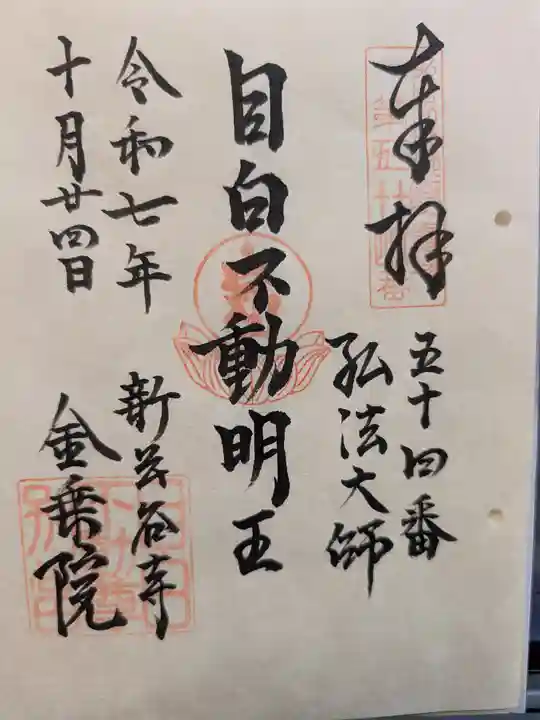 奉拝
五十四番
弘法大師
目白不動明王
令和七年
十月廿四日
新長谷寺
金乗院